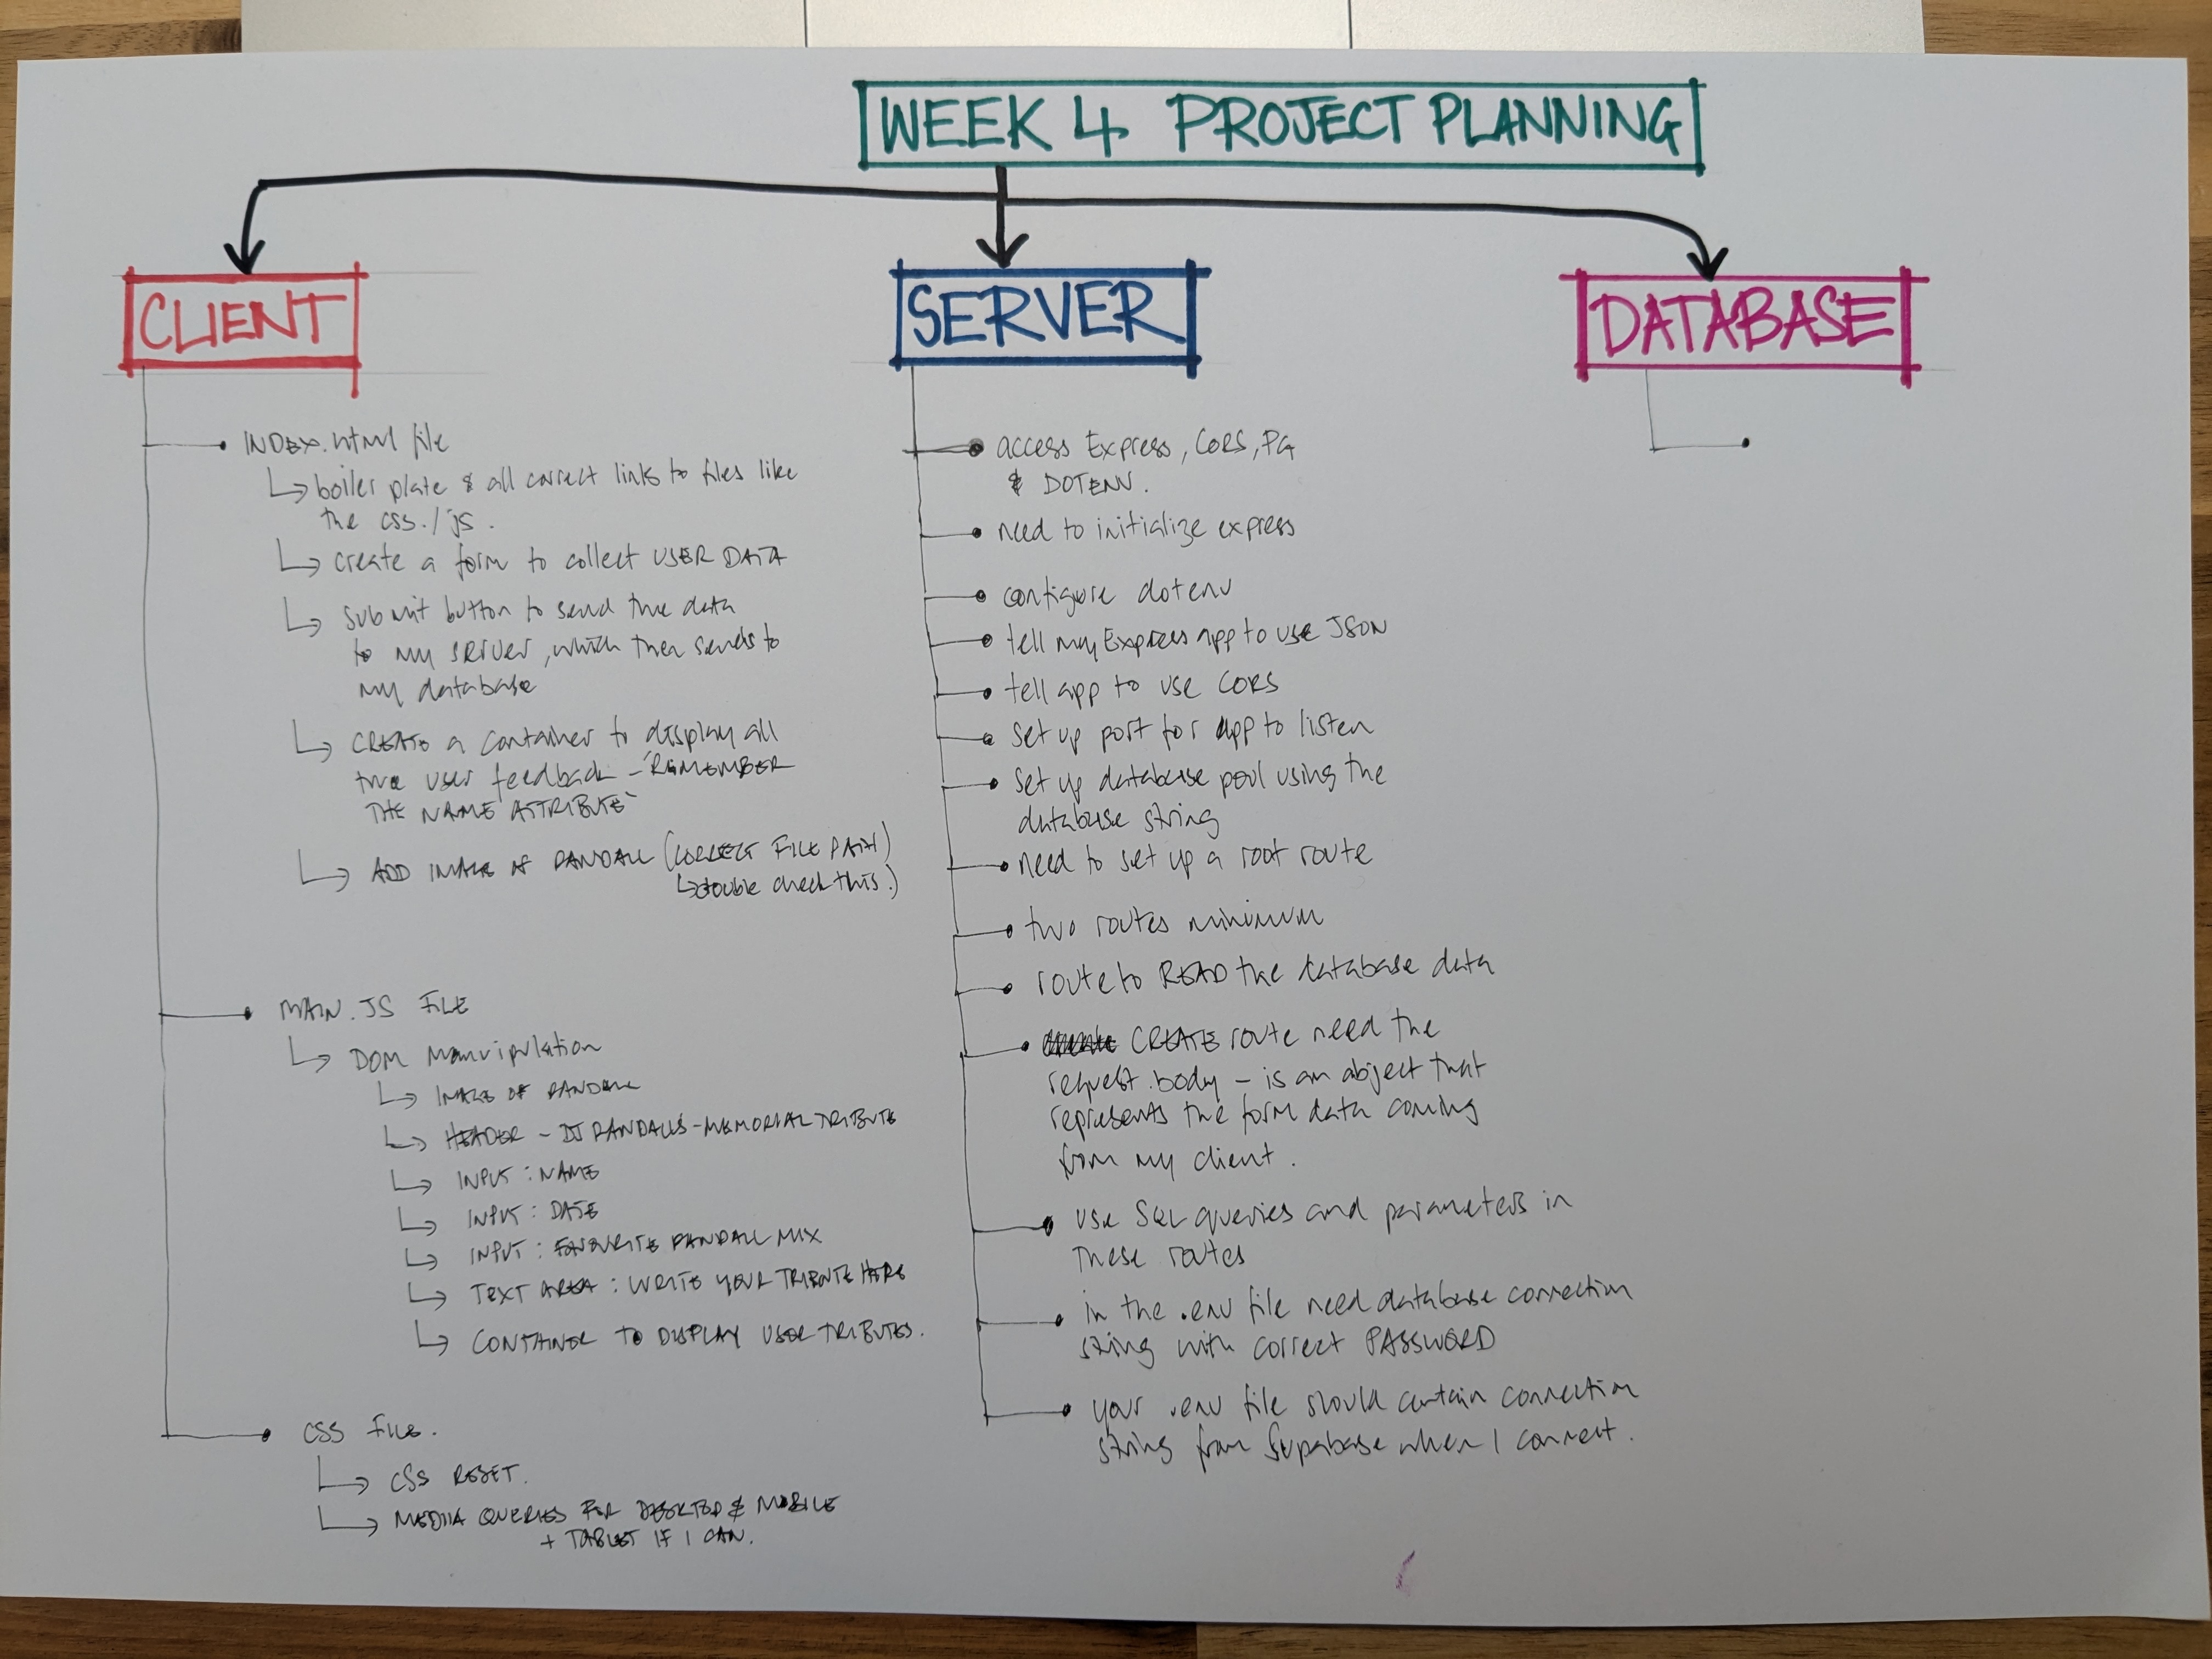 WEEK 4 PROJECT PLANNING
CLIENT
INDEX.html file
boiler plate & all correct links to files like
the css./js.
create a form to collect USER DATA
submit button to send the data
to my server, which then sends to
my database
CREATE a container to display all
the user feedback - 'REMEMBER
THE NAME ATTRIBUTE'
ADD IMAGE OF RANDALL (CORRECT FILE PATH)
double check this.)
MAIN.JS FILE
DOM Manipulation
IMAGE OF RANDALL
HEADER - DJ RANDALLS - MEMORIAL TRIBUTE
INPUT : NAME
INPUT : DATE
INPUT : FAVOURITE RANDALL MIX
TEXT AREA : WRITE YOUR TRIBUTE HERE
CONTAINER TO DISPLAY USER TRIBUTES.
CSS FILE.
CSS RESET.
MEDIA QUERIES FOR DESKTOP & MOBILE
+ TABLET IF I CAN.
SERVER
access Express, CORS, PG
& DOTENV.
need to initialize express
configure dotenv
tell my Express app to use JSON
tell app to use CORS
set up port for app to listen
set up database pool using the
database string
need to set up a root route
two routes minimum
route to READ the database data
CREATE route need the
request.body - is an object that
represents the form data coming
from my client.
use SQL queries and parameters in
these routes
in the .env file need database connection
string with correct PASSWORD
your .env file should contain connection
string from Supabase when I connect.
DATABASE